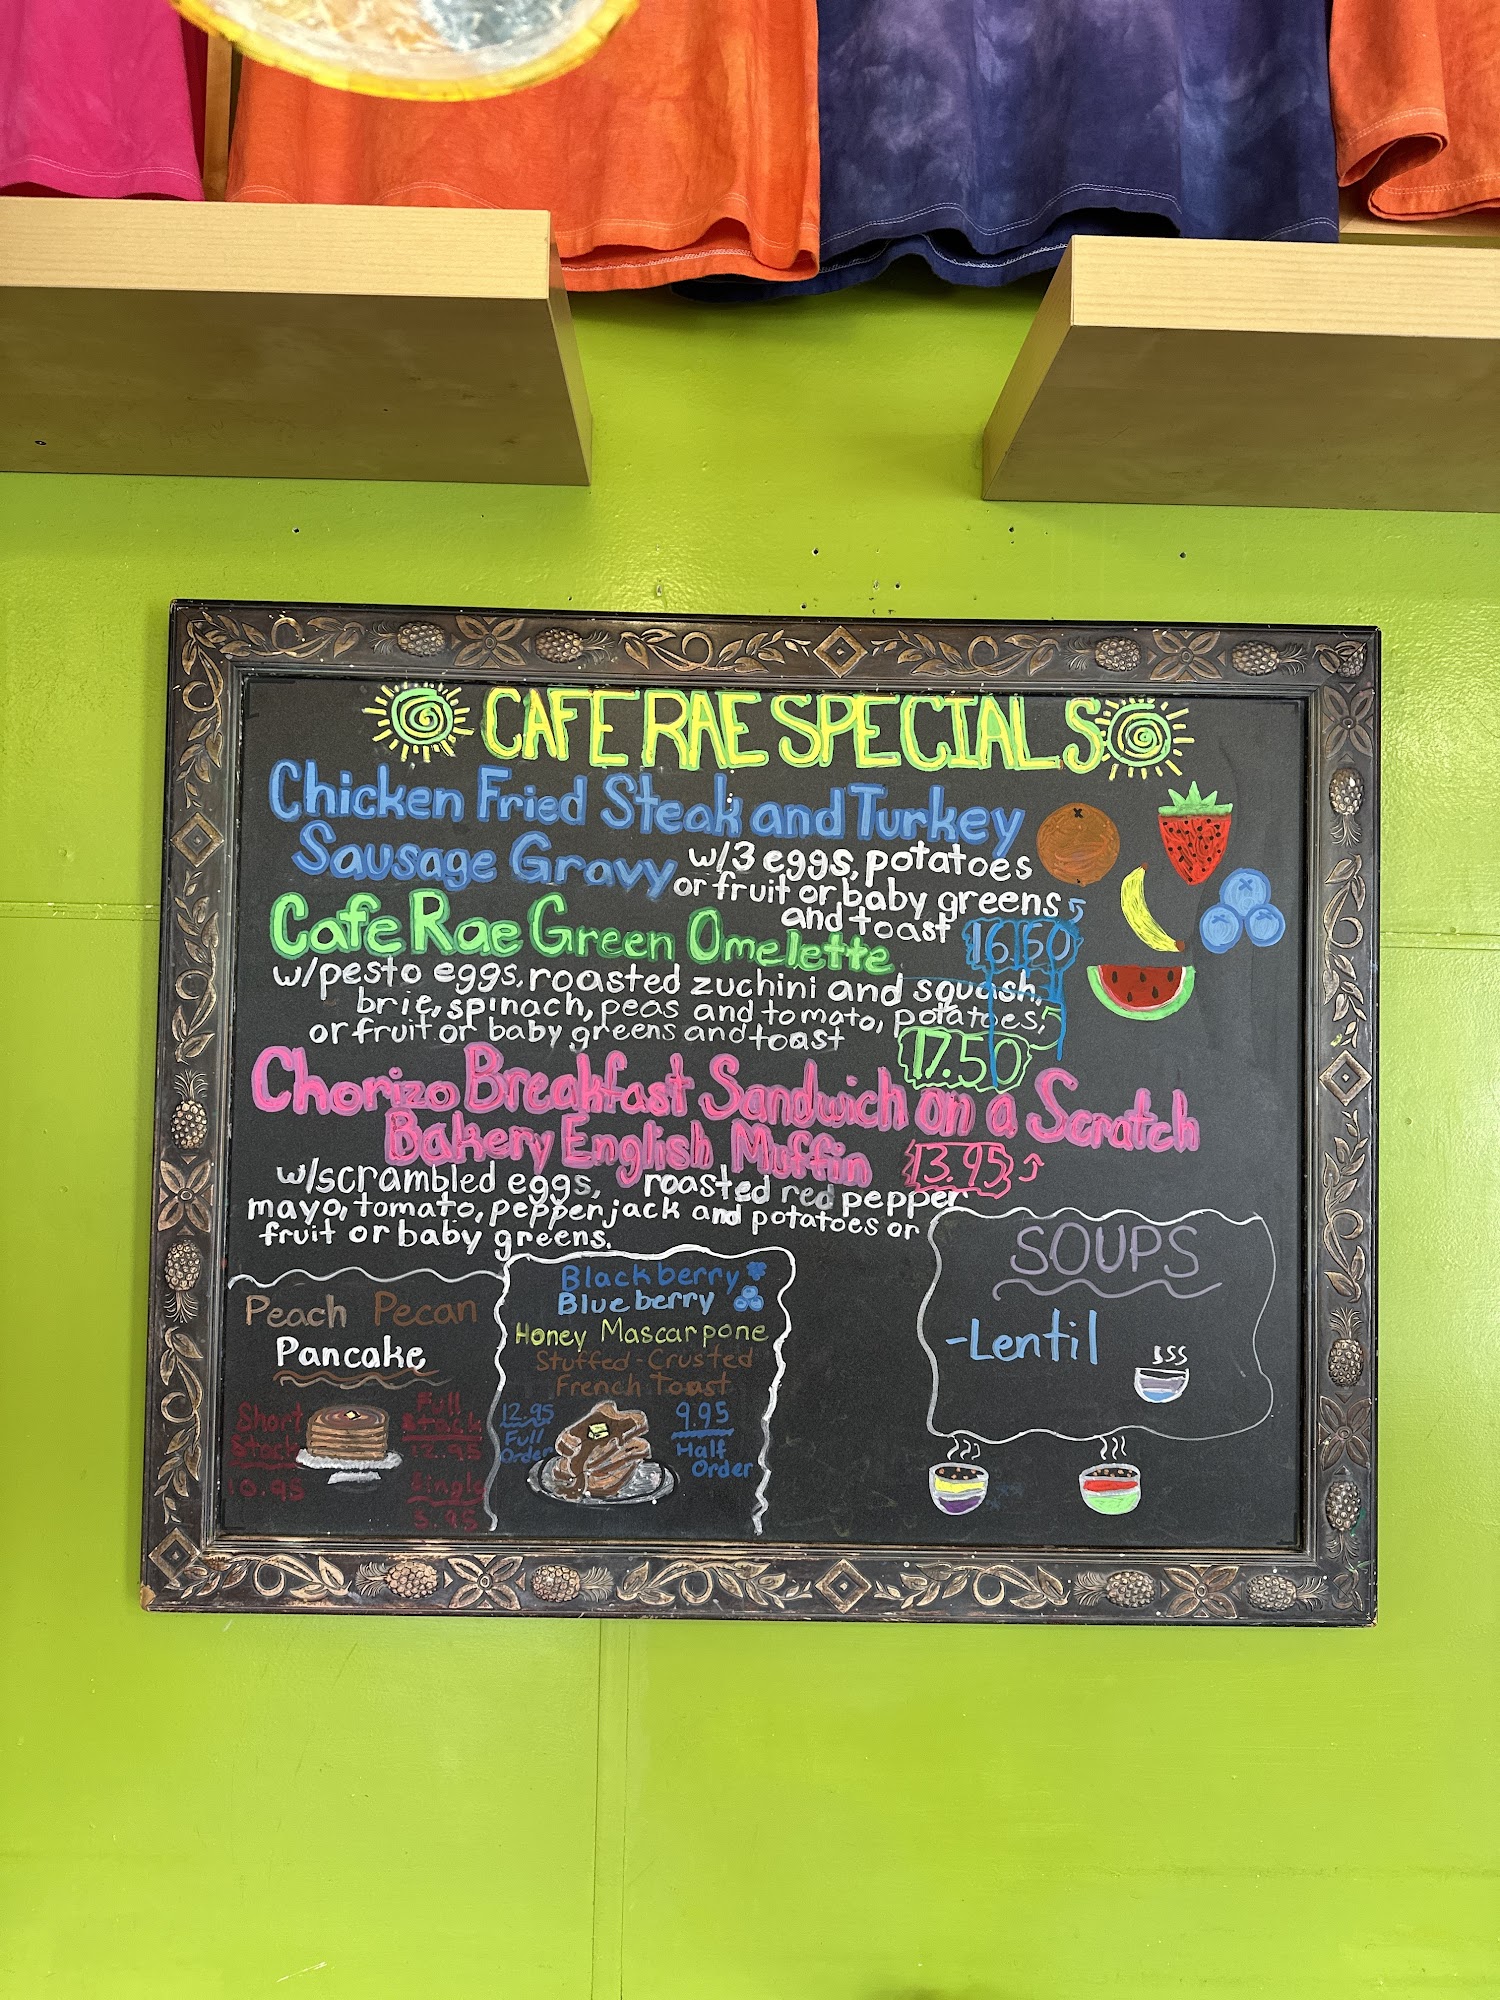 CAFE RAE SPECIALS
Chicken Fried Steak and Turkey
Sausage Gravy w/3 eggs, potatoes
or fruit or baby greens
and toast 16.50
Cafe Rae Green Omelette
w/pesto eggs, roasted zuchini and squash,
brie, spinach, peas and tomato, potatoes,
or fruit or baby greens and toast
17.50
Chorizo Breakfast Sandwich on a Scratch
Bakery English Muffin 13.95
w/scrambled eggs, roasted red pepper
mayo, tomato, pepperjack and potatoes or
fruit or baby greens.
Peach Pecan
Pancake
Short
Stack
10.95
Full
Stack
12.95
Single
5.95
Blackberry
Blueberry
Honey Mascarpone
Stuffed-Crusted
French Toast
12.95
Full
Order
9.95
Half
Order
SOUPS
-Lentil